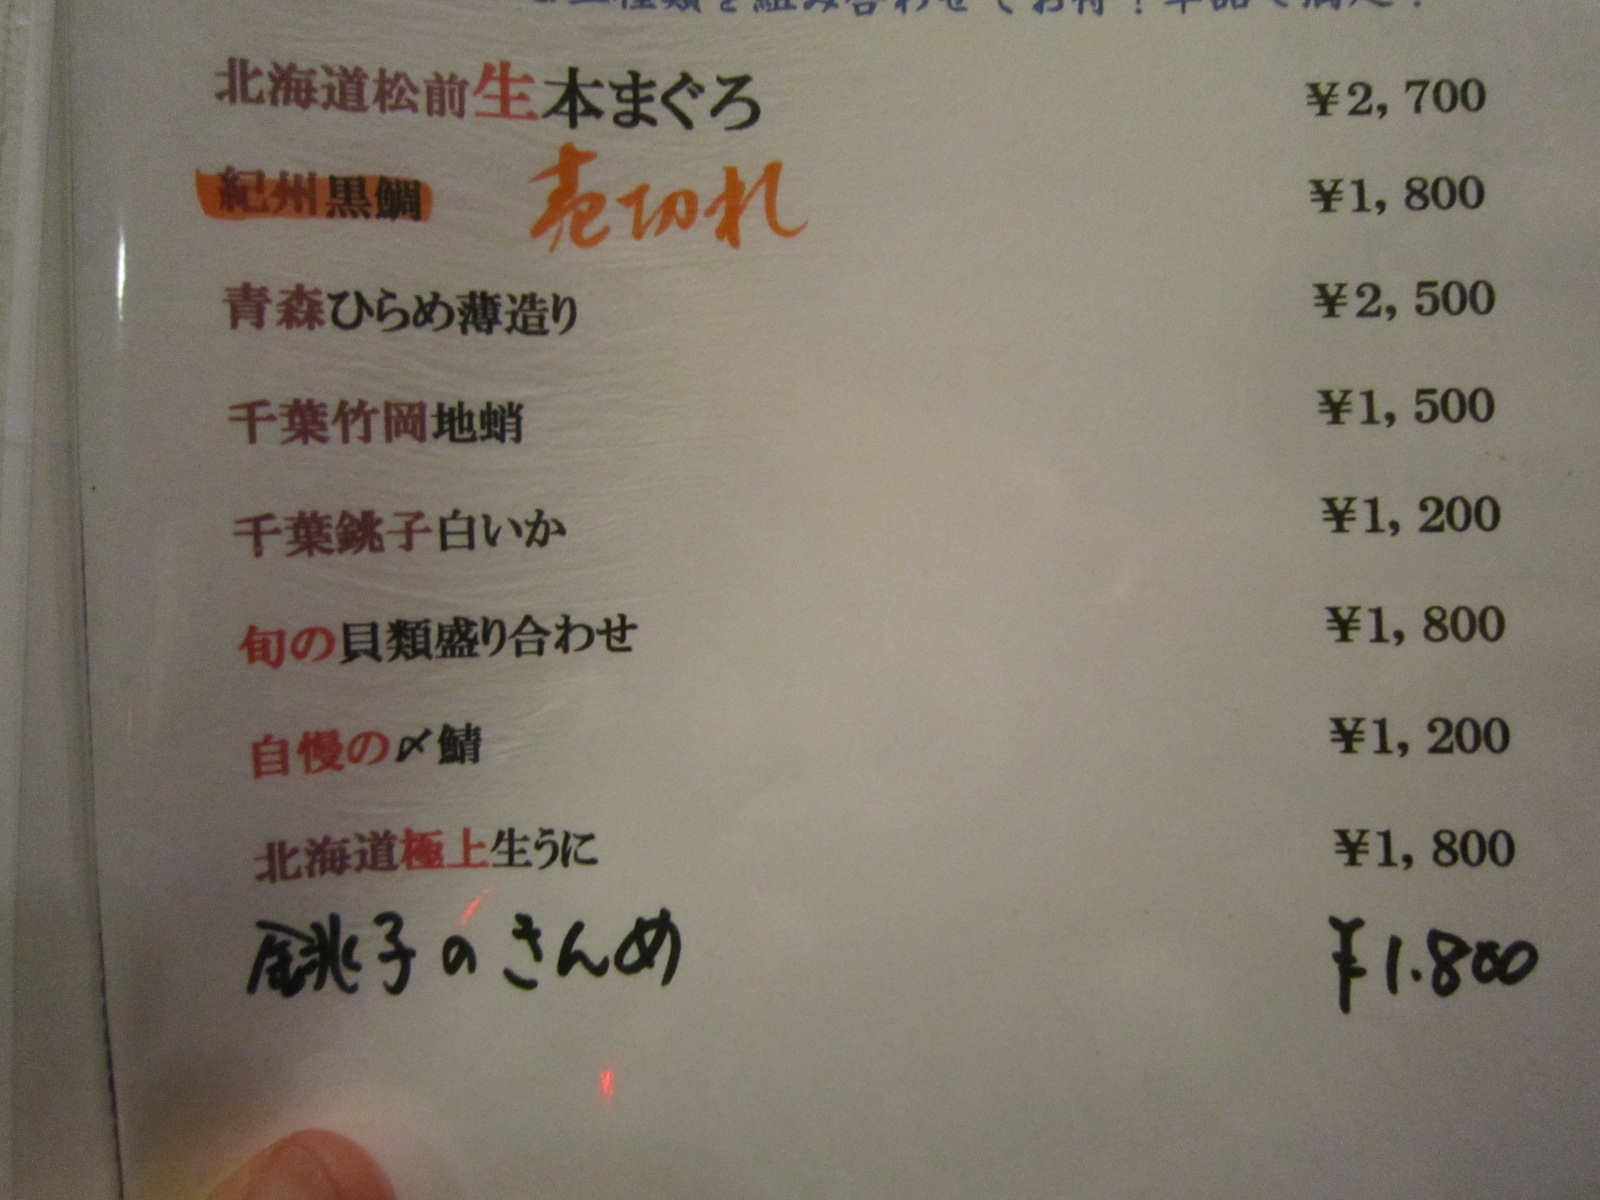 種類を組み合わせてお得!単品で満足!
北海道松前生本まぐろ ¥2,700
紀州黒鯛 売切れ ¥1,800
青森ひらめ薄造り ¥2,500
千葉竹岡地蛸 ¥1,500
千葉銚子白いか ¥1,200
旬の貝類盛り合わせ ¥1,800
自慢の〆鯖 ¥1,200
北海道極上生うに ¥1,800
銚子のきんめ ¥1.800